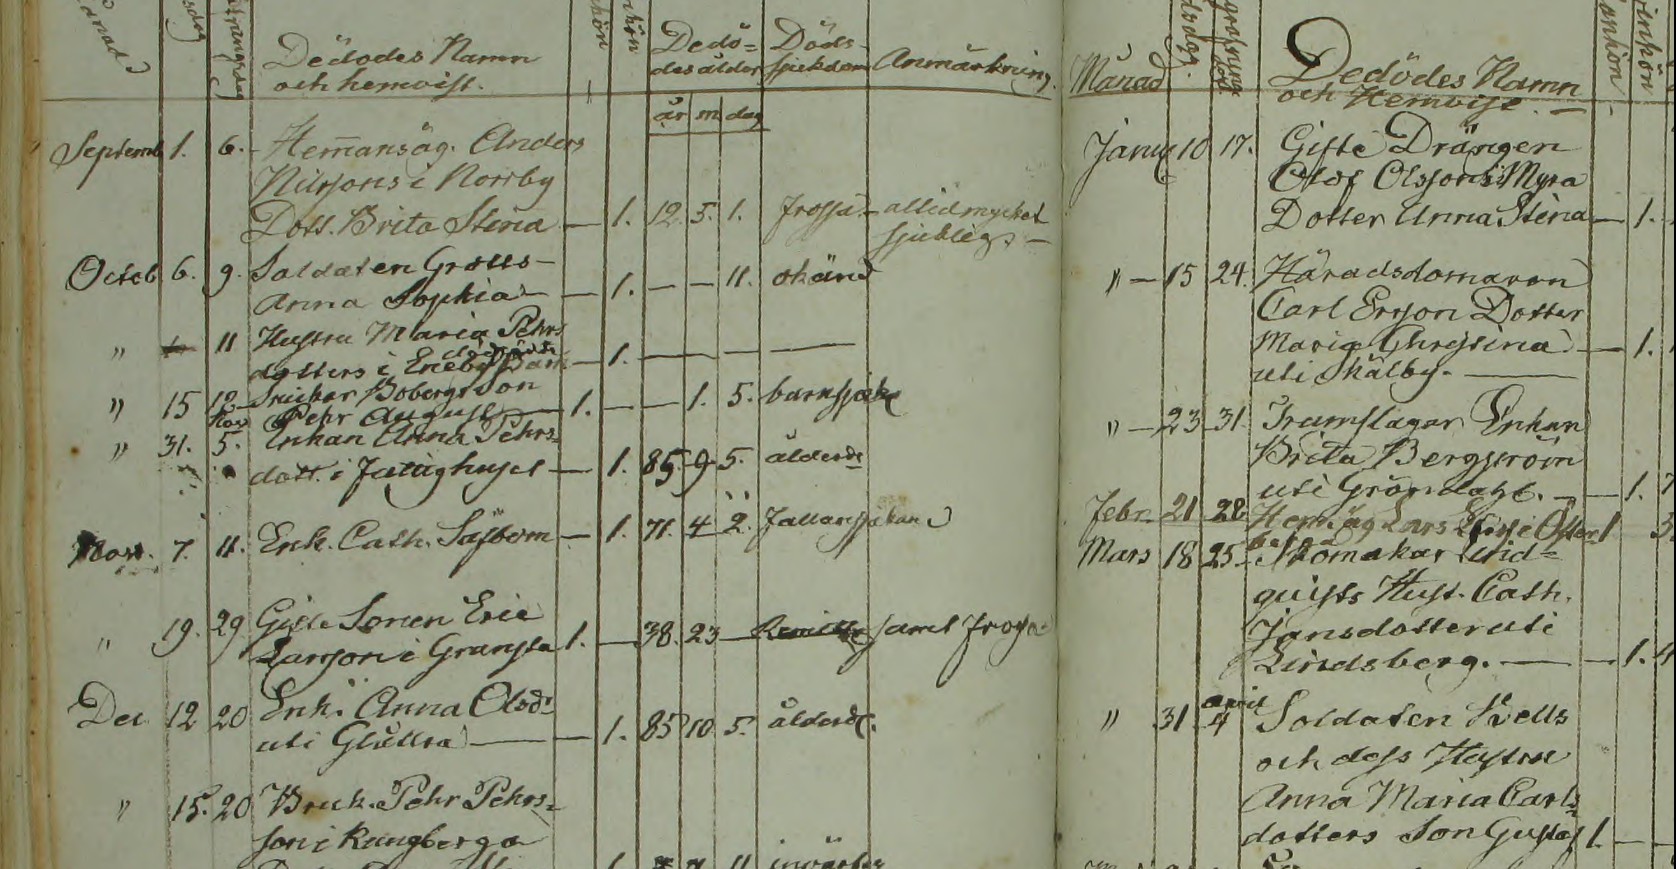 Dedödes Namn
och hemvist.
Dedö=
des ålder
Döds-
sjukdom
Anmärkning.
år m dag
Septemb 1. 6. Hemansäg. Anders
Nilssons i Norrby
Dott. Brita Stina — 1. 12 5. 1. frossa - altid mycket
sjuklig —
Octob 6. 9. Soldaten
Anna Sophia — — 1. — — 11. okänd
" 11 Hustru Maria Pehrs
dotters i Eneby dödfödde Barn — 1. — — — —
" 15 12 Snickar Bobergs Son
Nov Pehr August — 1. — — 1. 5. barnsjuk
" 31. 5. Enkan Anna Pehrs=
dott. i Fattighuset — 1. 85. 9. 5. ålderd
Nov. 7. 11. Enk. Cath. Säfbom — 1. 71. 4 2. fallansjukan
" 19. 29 Gifte Eric
Larsson i Gransta 1. — 38. 23 — samt frossa
Dec 12 20 Enk. Anna Olsd:
uti — — 1. 85 10. 5. ålderd.
" 15. 20 Bruk. Pehr Pehrs=
son i Rungberga
1. 11 invärtes
Månad
Dedödes Namn
och Hemvist
Janua 10 17. Gifte Drängen
Olof Olssons i Myra
Dotter Anna Stina — 1.
" — 15 24. Häradsdomaren
Carl Ersson Dotter
Maria Christina — — 1.
uti Skälby. —
" — 23 31. Trumslagar Enkan
Brita Bergström
uti Gröndahl. — — 1. 7
Febr. 21 28 Hemäg Lars i 1
Mars 18 25. Skomakar Lind=
quists Hust. Cath.
Jansdotter uti
Lindsberg. — — 1. 4
" 31. april 4 Soldaten
och dess Hustru
Anna Maria Carls
dotters Son Gustaf 1. —